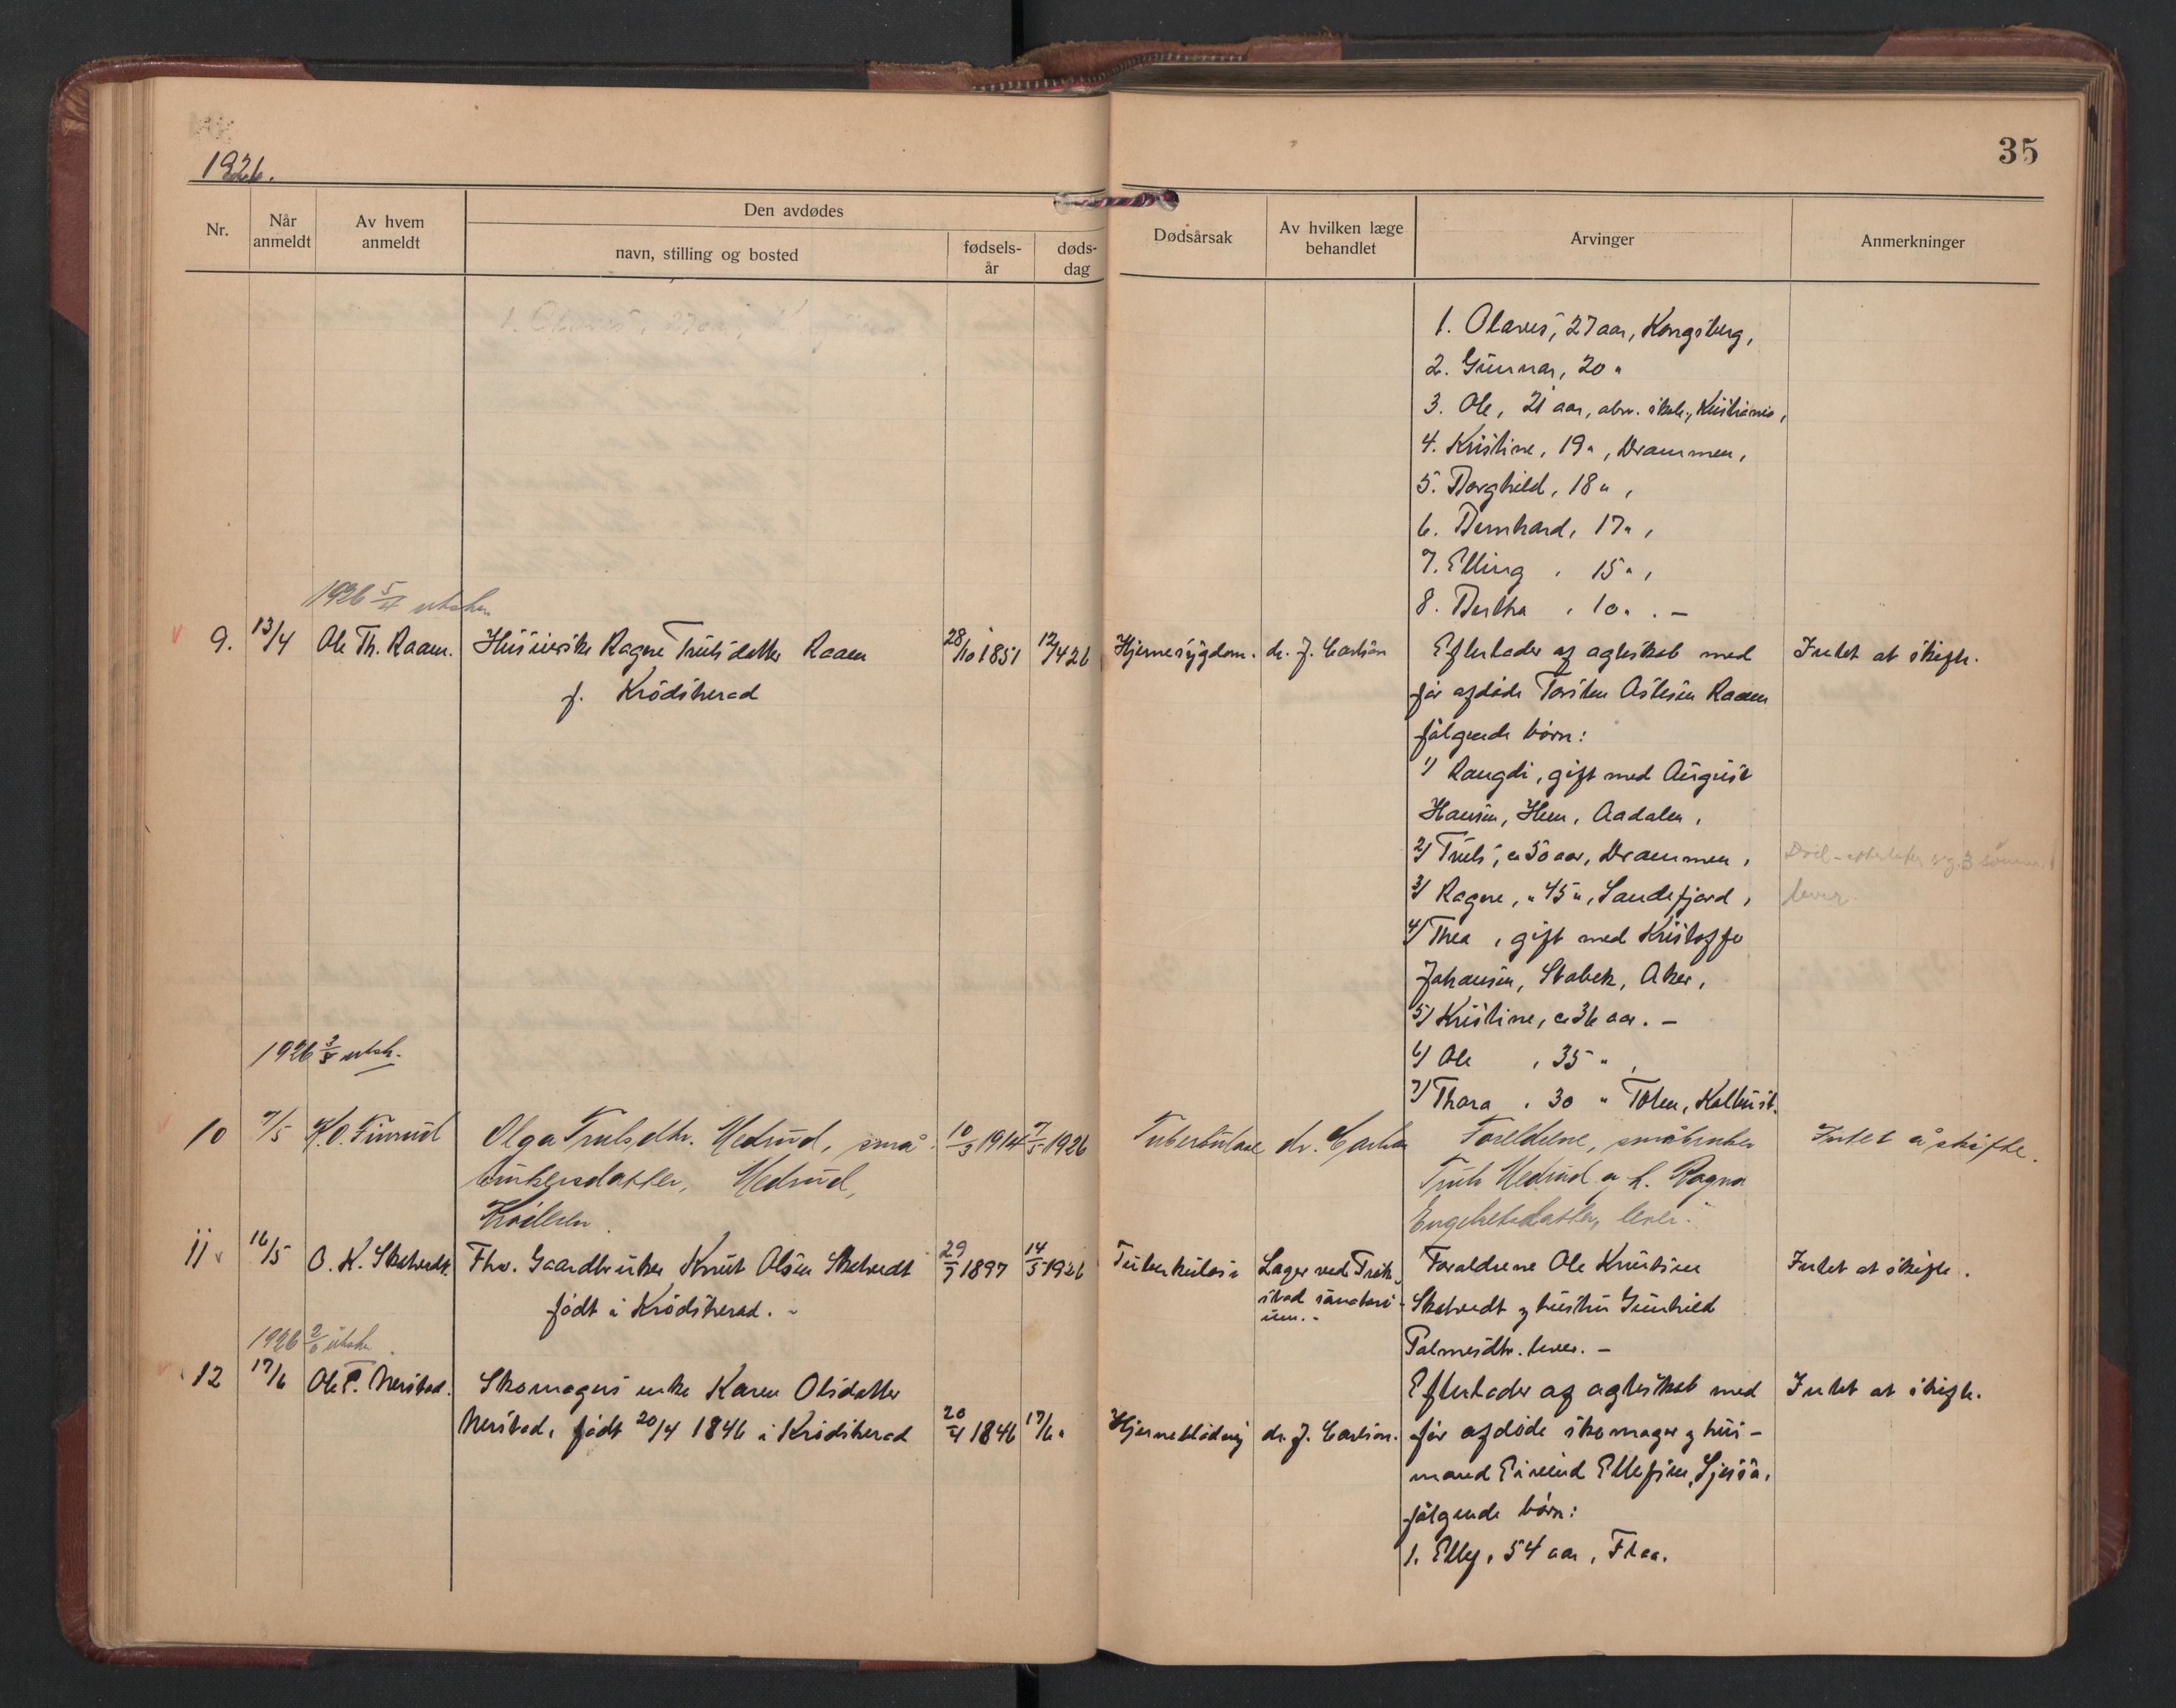 1926.
35
Nr.
Når anmeldt
Av hvem anmeldt
Den avdødes
navn, stilling og bosted
fødsels-år
døds-dag
Dødsårsak
Av hvilken læge behandlet
Arvinger
Anmerkninger
1. Olaves, 27 aar, Kongsberg,
2. Gunnar, 20 "
3. Ole, 21 aar, Kristiania,
4. Kristine, 19 ", Drammen,
5. Borghild, 18 ",
6. Bernhard, 17 ",
7. Elling, 15 ",
8. Bertha, 10 ". –
1926 5/4
9. 13/4 Ole Th. Raaen. Ragne Trulsdatter Raaen 28/10 1851 12/4 26 Hjernesygdom. dr. J. Carlson Efterlader af ægteskab med Intet at skifte.
f. Krødsherad
før afdøde Torsten Raaen
følgende børn:
1/ Rangdi, gift med August
Hansen, Hen, Aadalen,
2/ Truls, c. 50 aar, Drammen,
3/ Ragne, " 45 ", Sandefjord,
lever.
4/ Thea, gift med Kristoffer
Johansen, Stabek, Aker,
5/ Kristine, c. 36 aar. –
6/ Ole, 35 ",
7/ Thora, 30 " Toten, Kolbust.
1926 utsk.
10 7/5 K. O. Finrud Olga Trulsdtr. Medrud, små- 10/3 1914 7/5 1926 Tuberkulose dr. Carlson Foreldrene, småbruker Intet å skifte.
brukersdatter, Medrud,
Truls Medrud og h. Ragna
Krøderen.
Engebretsdatter, lever.
11 16/5 O. K. Skatvedt. Fhv. Gaardbruker Knut Olsen Skatvedt 29/7 1897 14/5 1926 Tuberkulose Læger ved Forældrene Ole Knutsen Intet at skifte.
født i Krødsherad. –
sanatori-
um. –
Skatvedt og hustru Gunhild
Palmesdtr. lever. –
1926
12 17/6 Ole P. Nerstad. Skomagers enke Karen Olsdatter
Efterlader af ægteskab med Intet at skifte.
Nerstad, født 20/4 1846 i Krødsherad 20/4 1846 17/6 " Hjerneblødning dr. J. Carlson. før afdøde skomager og hus-
mand Eivind Ellefsen
følgende børn:
1. Elly, 54 aar, Flaa.